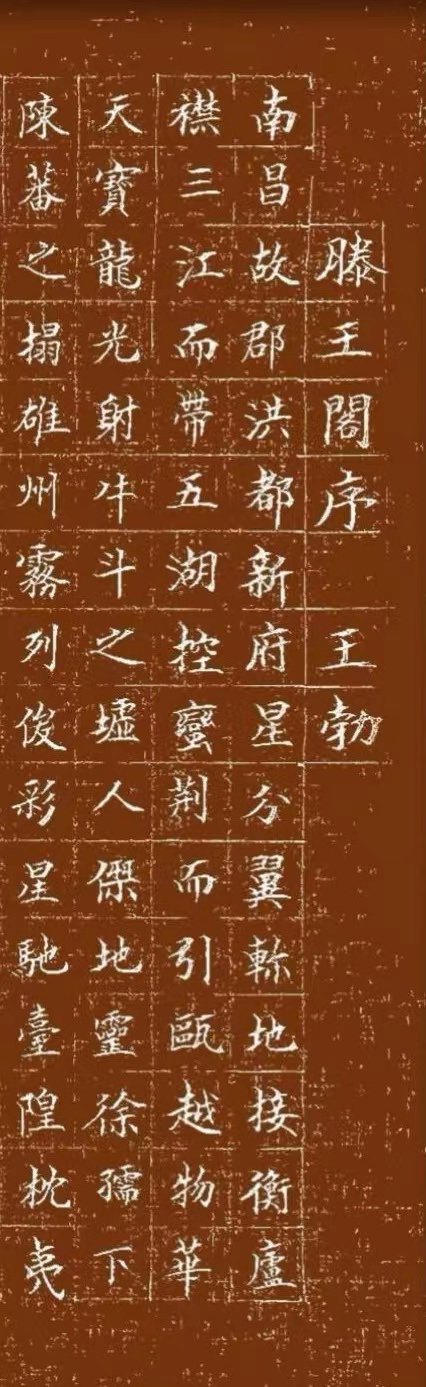 滕王閣序 王勃
南昌故郡洪都新府星分翼軫地接衡廬
襟三江而帶五湖控蠻荊而引甌越物華
天寶龍光射牛斗之墟人傑地靈徐孺下
陳蕃之榻雄州霧列俊彩星馳臺隍枕夷